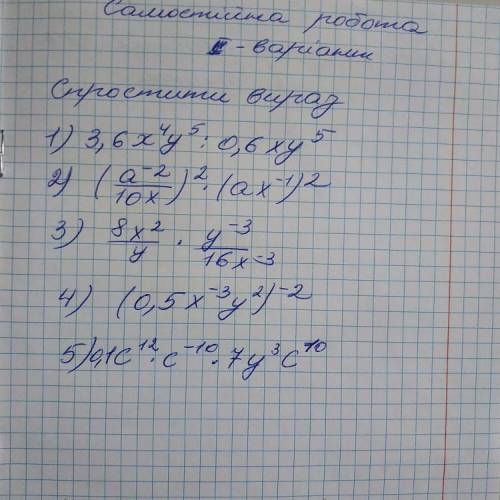 Самостійна робота
I - варіант
Спростити вираз
1) 3,6x⁴y⁵ : 0,6xy⁵
2) (a⁻²/10x)² · (ax⁻¹)²
3) 8x²/y · y⁻³/16x⁻³
4) (0,5x⁻³y²)⁻²
5) 0,1c¹² · c⁻¹⁰ · 7y³c¹⁰